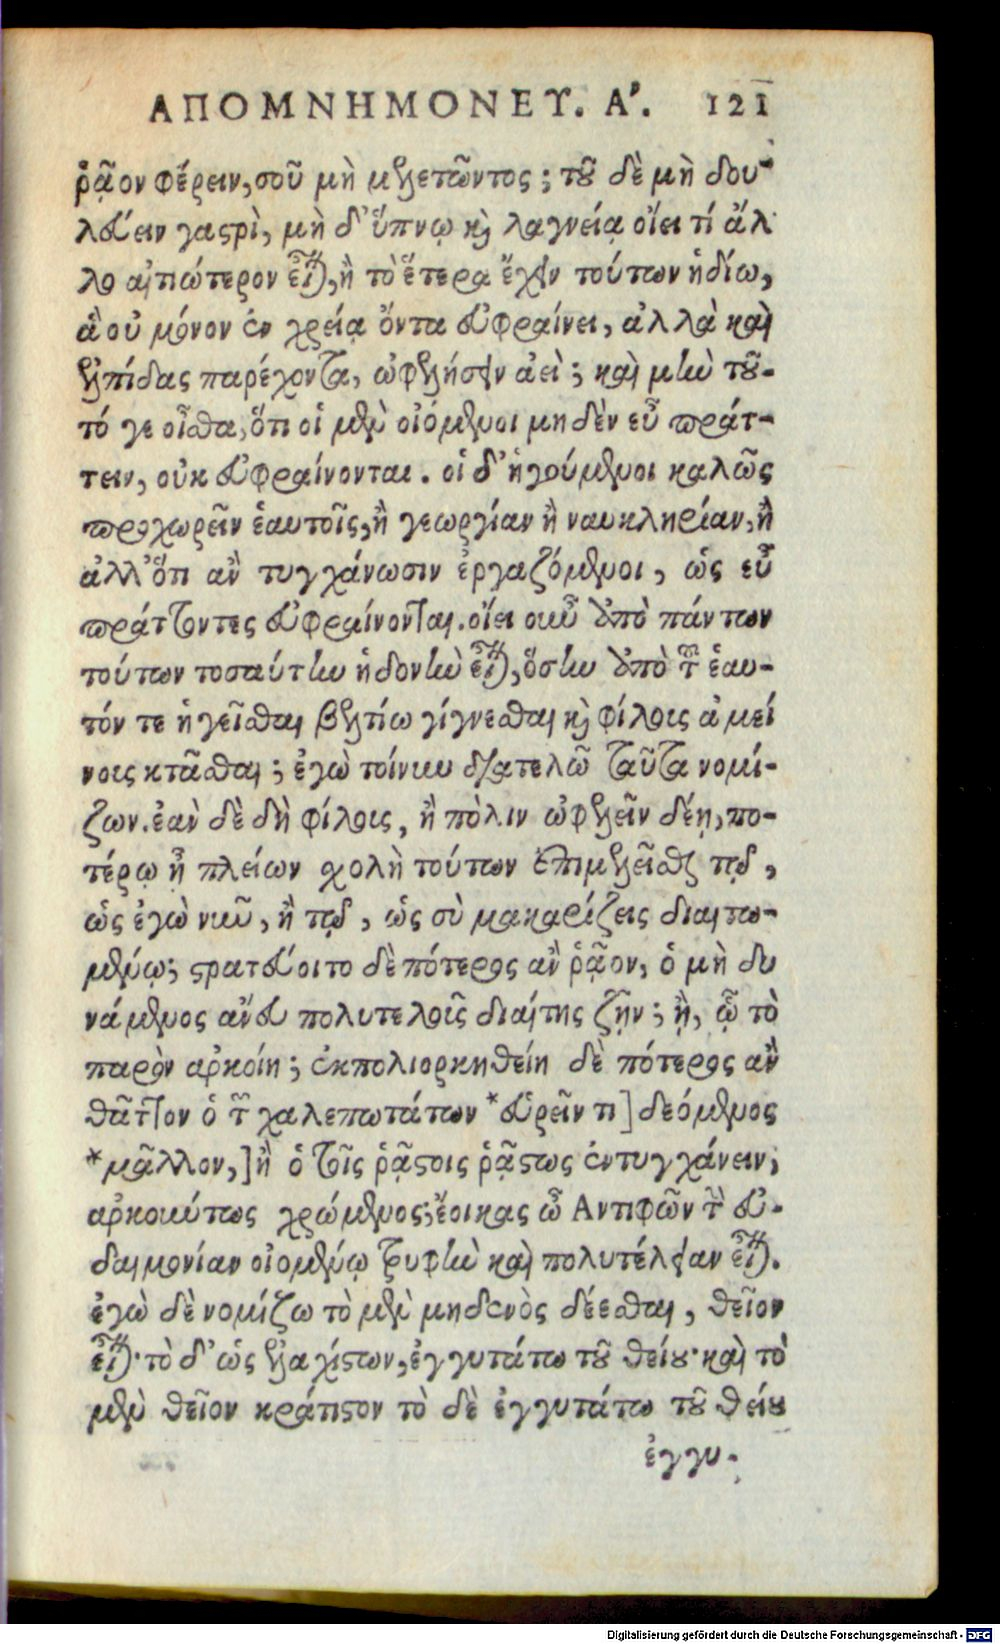 ΑΠΟΜΝΗΜΟΝΕΥ. Α'. 121
ῥᾷον φέρειν, σοῦ μὴ μελετῶντος; τοῦ δὲ μὴ δου-
λεύειν γαστρὶ, μὴ δ' ὕπνῳ καὶ λαγνείᾳ οἴει τί ἄλ
λο αἰτιώτερον εἶναι, ἢ τὸ ἕτερα ἔχειν τούτων ἡδίω,
ἃ οὐ μόνον ἐν χρείᾳ ὄντα εὐφραίνει, ἀλλὰ καὶ
ἐλπίδας παρέχοντα, ὠφελήσειν ἀεὶ; καὶ μὴν τοῦ-
τό γε οἶσθα, ὅτι οἱ μὲν οἰόμενοι μηδὲν εὖ πράτ-
τειν, οὐκ εὐφραίνονται. οἱ δ' ἡγούμενοι καλῶς
προχωρεῖν ἑαυτοῖς, ἢ γεωργίαν ἢ ναυκληρίαν, ἢ
ἀλλ' ὅτι ἂν τυγχάνωσιν ἐργαζόμενοι, ὡς εὖ
πράττοντες εὐφραίνονται. οἴει οὖν ἀπὸ πάντων
τούτων τοσαύτην ἡδονὴν εἶναι, ὅσην ἀπὸ τοῦ ἑαυ-
τόν τε ἡγεῖσθαι βελτίω γίγνεσθαι καὶ φίλοις ἀμεί
νοις κτᾶσθαι; ἐγὼ τοίνυν διατελῶ ταῦτα νομί-
ζων. ἐὰν δὲ δὴ φίλοις, ἢ πόλιν ὠφελεῖν δέῃ, πο-
τέρῳ ἡ πλείων σχολὴ τούτων ἐπιμελεῖσθαι τῷ,
ὡς ἐγὼ νῦν, ἢ τῷ, ὡς σὺ μακαρίζεις διαιτω-
μένῳ; στρατεύοιτο δὲ πότερος ἂν ῥᾷον, ὁ μὴ δυ
νάμενος ἄνευ πολυτελοῖς διαίτης ζῆν; ἢ, ᾧ τὸ
παρὸν ἀρκοίη; ἐκπολιορκηθείη δὲ πότερος ἂν
θᾶττον ὁ τῶν χαλεπωτάτων *εὑρεῖν τι] δεόμενος
*μᾶλλον,] ἢ ὁ τοῖς ῥᾴστοις ῥᾴστως ἐντυγχάνειν,
ἀρκούντως χρώμενος; ἔοικας ὦ Ἀντιφῶν τὴν εὐ-
δαιμονίαν οἰομένῳ τρυφὴν καὶ πολυτέλειαν εἶναι.
ἐγὼ δὲ νομίζω τὸ μὲν μηδενὸς δέεσθαι, θεῖον
εἶναι· τὸ δ' ὡς ἐλαχίστων, ἐγγυτάτω τοῦ θείου· καὶ τὸ
μὲν θεῖον κράτιστον τὸ δὲ ἐγγυτάτω τοῦ θείου
ἐγγυ-
Digitalisierung gefördert durch die Deutsche Forschungsgemeinschaft - DFG